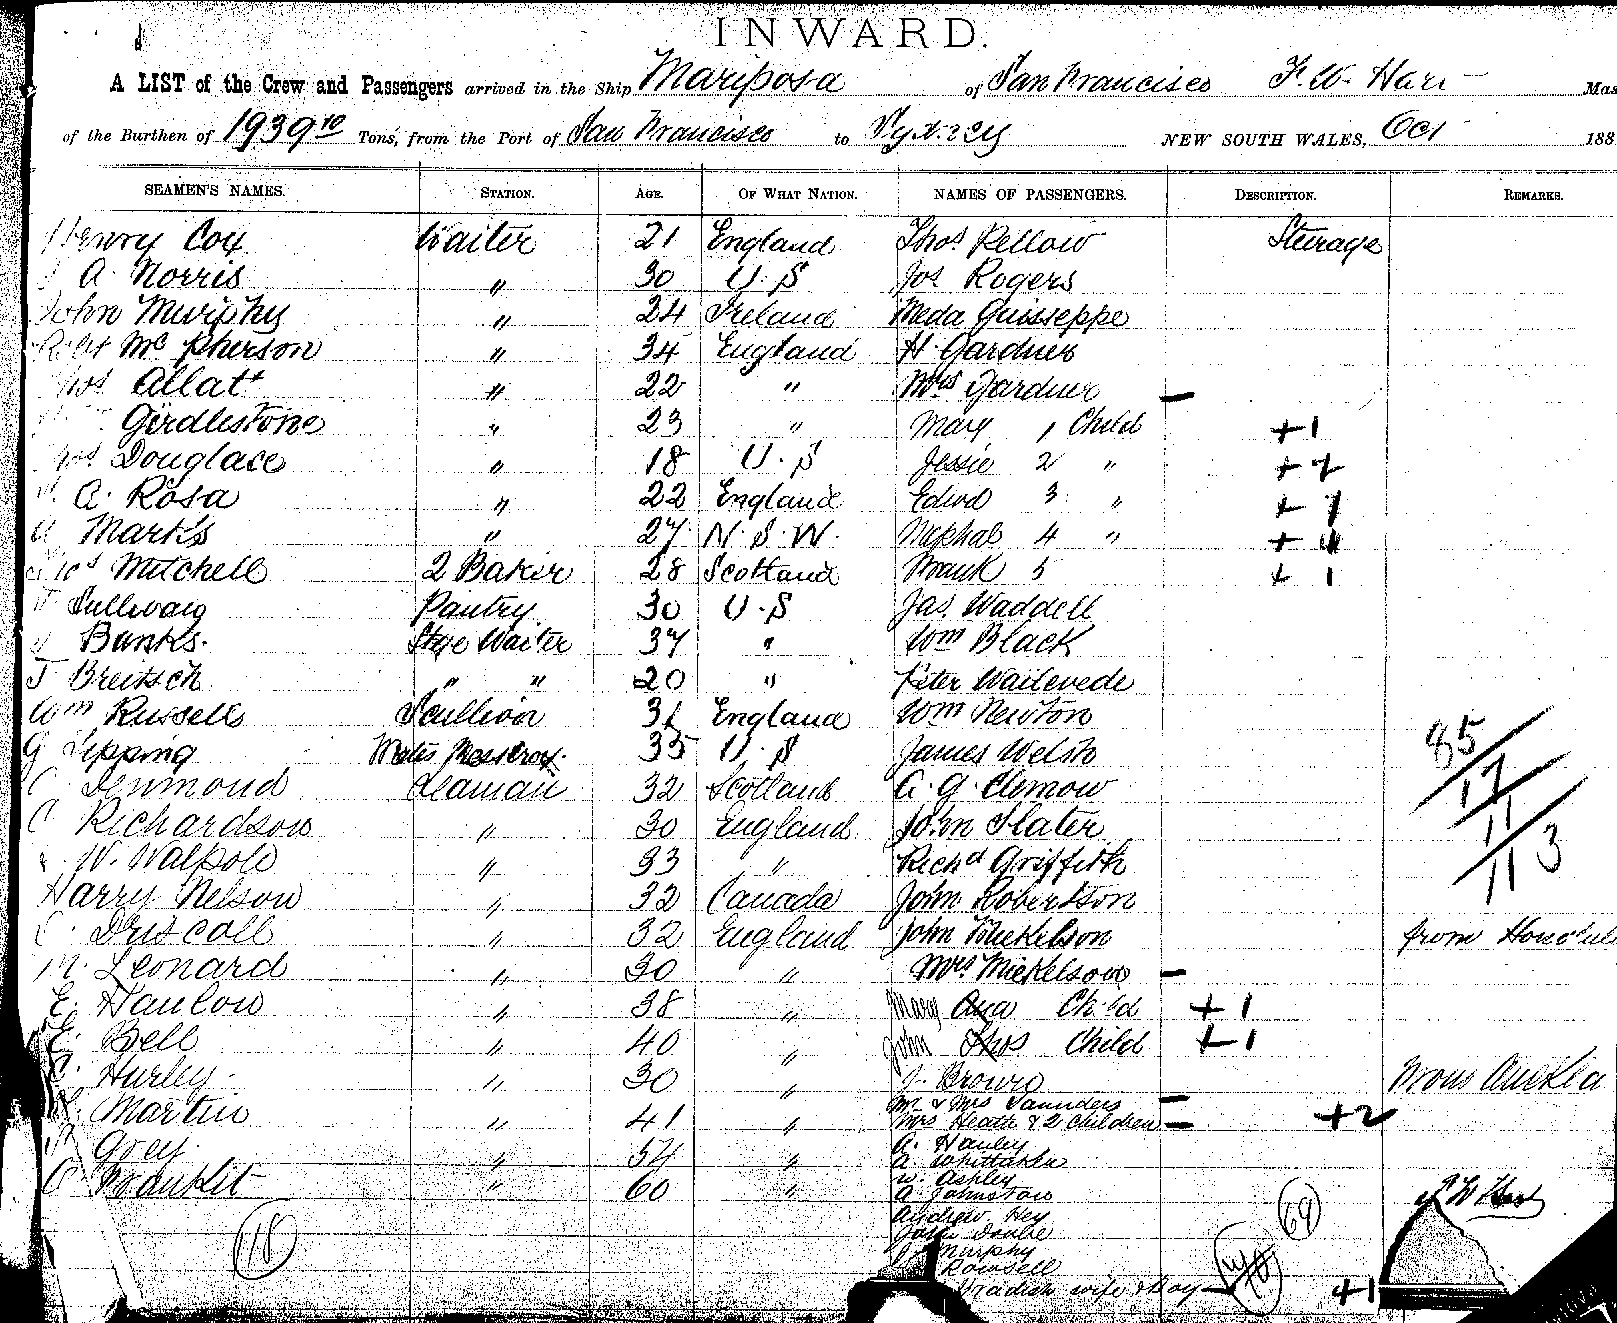 INWARD.
A LIST of the Crew and Passengers arrived in the Ship Mariposa of San Francisco F. W. Hart Mas
of the Burthen of 1939 10 Tons, from the Port of San Francisco to Sydney NEW SOUTH WALES, Oct 188
SEAMEN'S NAMES. STATION. AGE. OF WHAT NATION. NAMES OF PASSENGERS. DESCRIPTION. REMARKS.
Henry Cox Waiter 21 England Thos Kellow Steerage
A. Norris " 30 U.S Jos Rogers
John Murphy " 24 Ireland Meda Guisseppe
Robt McPherson " 34 England H Gardner
Thos Allatt " 22 " Mrs Gardner —
Girdlestone " 23 " Mary 1 Child +1
Douglace " 18 U.S Jessie 2 " +
A. Rosa " 22 England Edwd 3 " + 1
Marks " 27 N.S.W. 4 " + 1
Mitchell 2 Baker 28 Scotland Frank 5 + 1
Pantry 30 U.S Jas. Waddell
Banks. Stge Waiter 37 " Wm Black
J Breitsch " " 20 " Peter
Wm Russell Scullion 31 England Wm Newton
G Lepping Mates Messboy. 35 U.S James Welsh 85
Desmond Seaman 32 Scotland A. G. Clemow 17
C Richardson " 30 England John Slater 11
W. Walpole " 33 " Richd Griffith 113
Harry Nelson " 32 Canada John Robertson
Driscoll " 32 England John Mickelson from Honolul
M. Leonard " 30 " Mrs Mickelson —
E. Hanlon " 38 " Mary Child +1
E. Bell " 40 " John Thos Child +1
Hurley. " 30 " J. Brown From Auckla
Martin " 41 " M & Mrs Saunders —
Mrs Heath & 2 Children — +2
Grey " 34 " A. Hanley
A. Whittaker
60 " W. Ashley F W Hart
A Johnston
Andrew Hey 69
118
Murphy
Rowsell
wife & boy +1